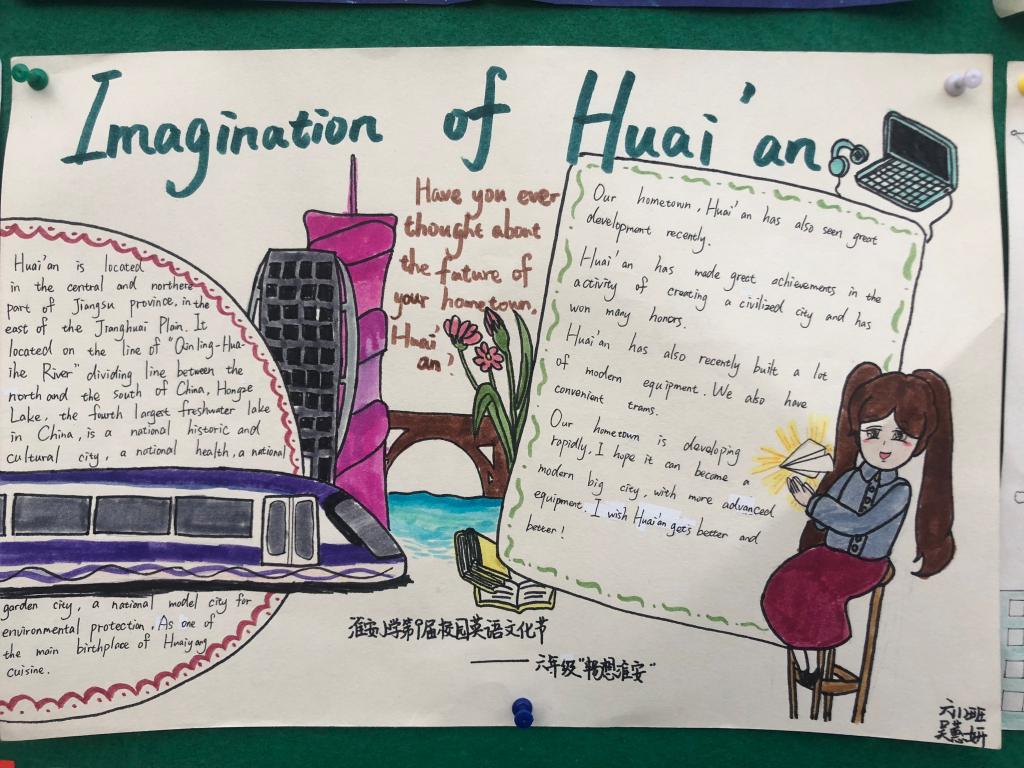 Imagination of Huai'an
Huai'an is located
in the central and northern
part of Jiangsu province, in the
east of the Jianghuai Plain. It
located on the line of "Qinling-Hua-
ihe River" dividing line between the
north and the south of China, Hongze
Lake, the fourth largest freshwater lake
in China, is a national historic and
cultural city, a national health, a national
garden city, a national model city for
environmental protection. As one of
the main birthplace of Huaiyang
cuisine.
Have you ever
thought about
the future of
your hometown,
Huai'
an?
Our hometown, Huai'an has also seen great
development recently.
Huai'an has made great achievements in the
activity of creating a civilized city and has
won many honors.
Huai'an has also recently built a lot
of modern equipment. We also have
convenient trams.
Our hometown is developing
rapidly, I hope it can become a
modern big city, with more advanced
equipment. I wish Huai'an gets better and
better!
淮安小学第9届校园英语文化节
——六年级"畅想淮安"
六(12)班
吴蕙妍